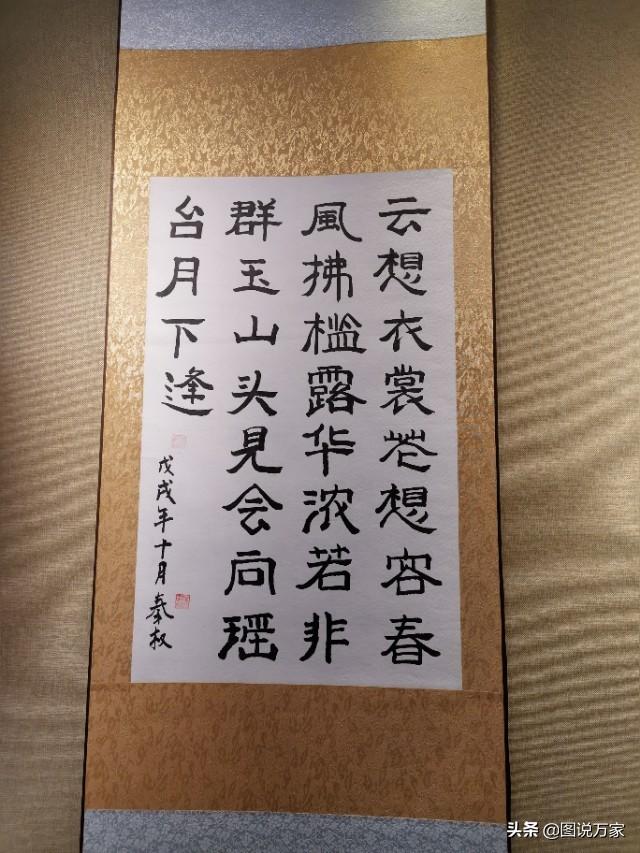 云想衣裳花想容春
風拂槛露华浓若非
群玉山头見会向瑶
台月下逢
戊戌年十月奉叔
头条 @图说万家